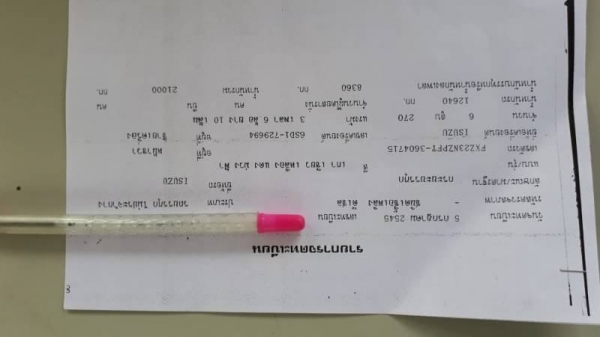 รายการจดทะเบียน
วันจดทะเบียน 5 กรกฎาคม 2545 เลขทะเบียน
รหัสตรวจสภาพ - ชนิดเชื้อเพลิง ดีเซล ประเภท รถบรรทุก ไม่ประจำทาง
ลักษณะ/มาตรฐาน กระบะบรรทุก ยี่ห้อรถ ISUZU
แบบ/รุ่น สี เทา เขียว เหลือง แดง ม่วง ฟ้า
เลขตัวรถ FXZ23NZPFT-3604715 อยู่ที่
ยี่ห้อเครื่องยนต์ ISUZU เลขเครื่องยนต์ 6SD1-729694 อยู่ที่
จำนวน 6 สูบ 270 แรงม้า 3 เพลา 6 ล้อ ยาง 10 เส้น
น้ำหนักรถ 12640 กก. จำนวนผู้โดยสารนั่ง คน ยืน คน
น้ำหนักบรรทุก 8360 กก. น้ำหนักรวม 21000 กก.